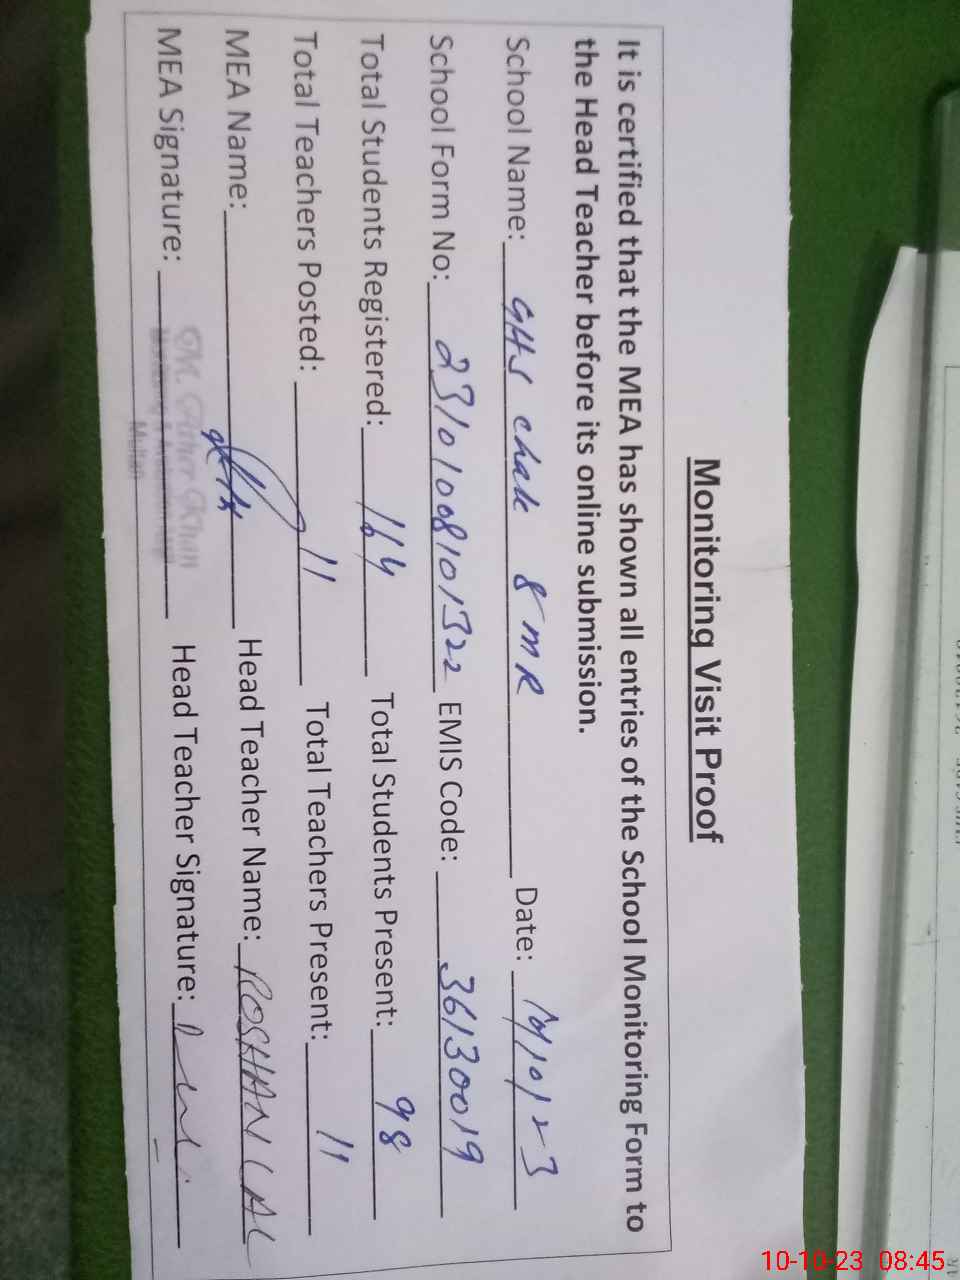 Monitoring Visit Proof
It is certified that the MEA has shown all entries of the School Monitoring Form to
the Head Teacher before its online submission.
School Name: GHS chak 8 MR Date:
School Form No: 23101008101322 EMIS Code: 36130019
Total Students Registered: 164 Total Students Present: 98
Total Teachers Posted: 11 Total Teachers Present: 11
MEA Name: Head Teacher Name: ROSHAN LAL
MEA Signature: Head Teacher Signature:
Khan
Multan
10-10-23 08:45